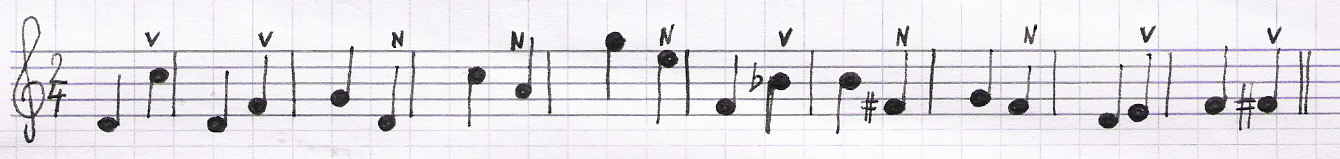 V V N N N V N N V V
2
4